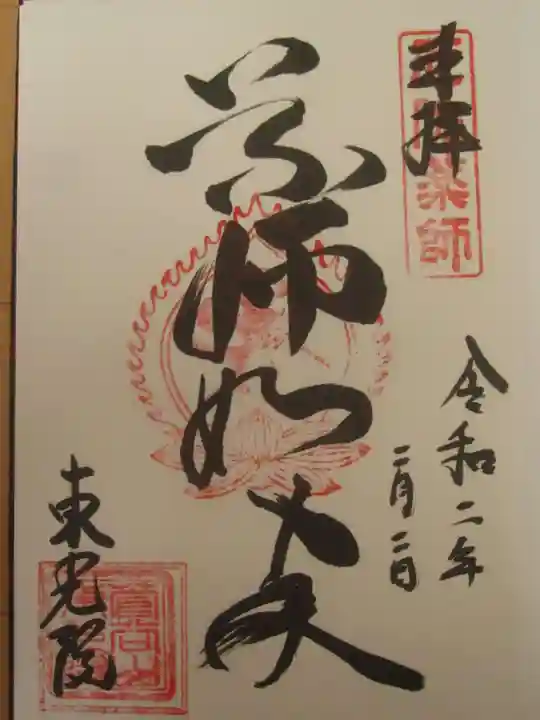 奉拝
薬師
令和二年
二月二日
薬師如来
東光院